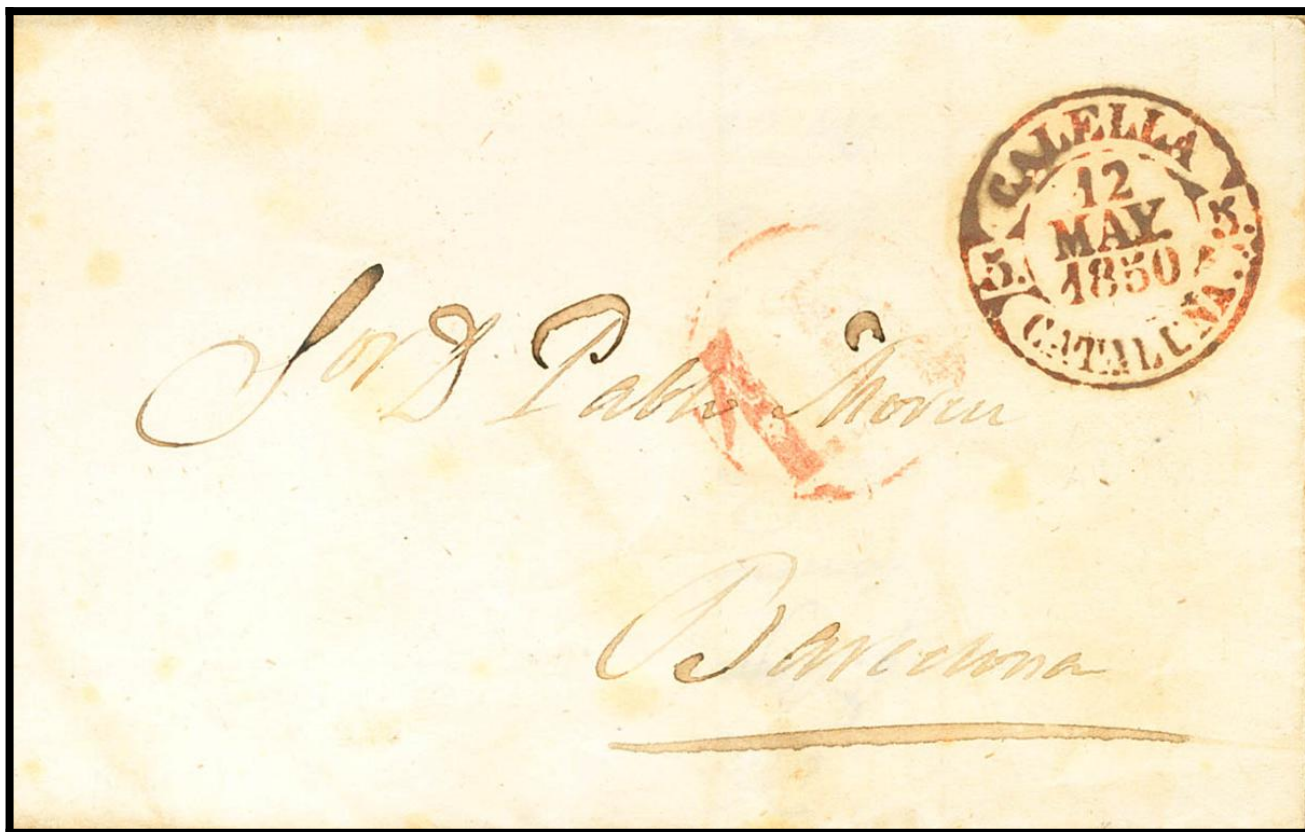 CALELLA
12
MAY.
1850
5. 5.
CATALUÑA.
Sor D Pablo
Barcelona